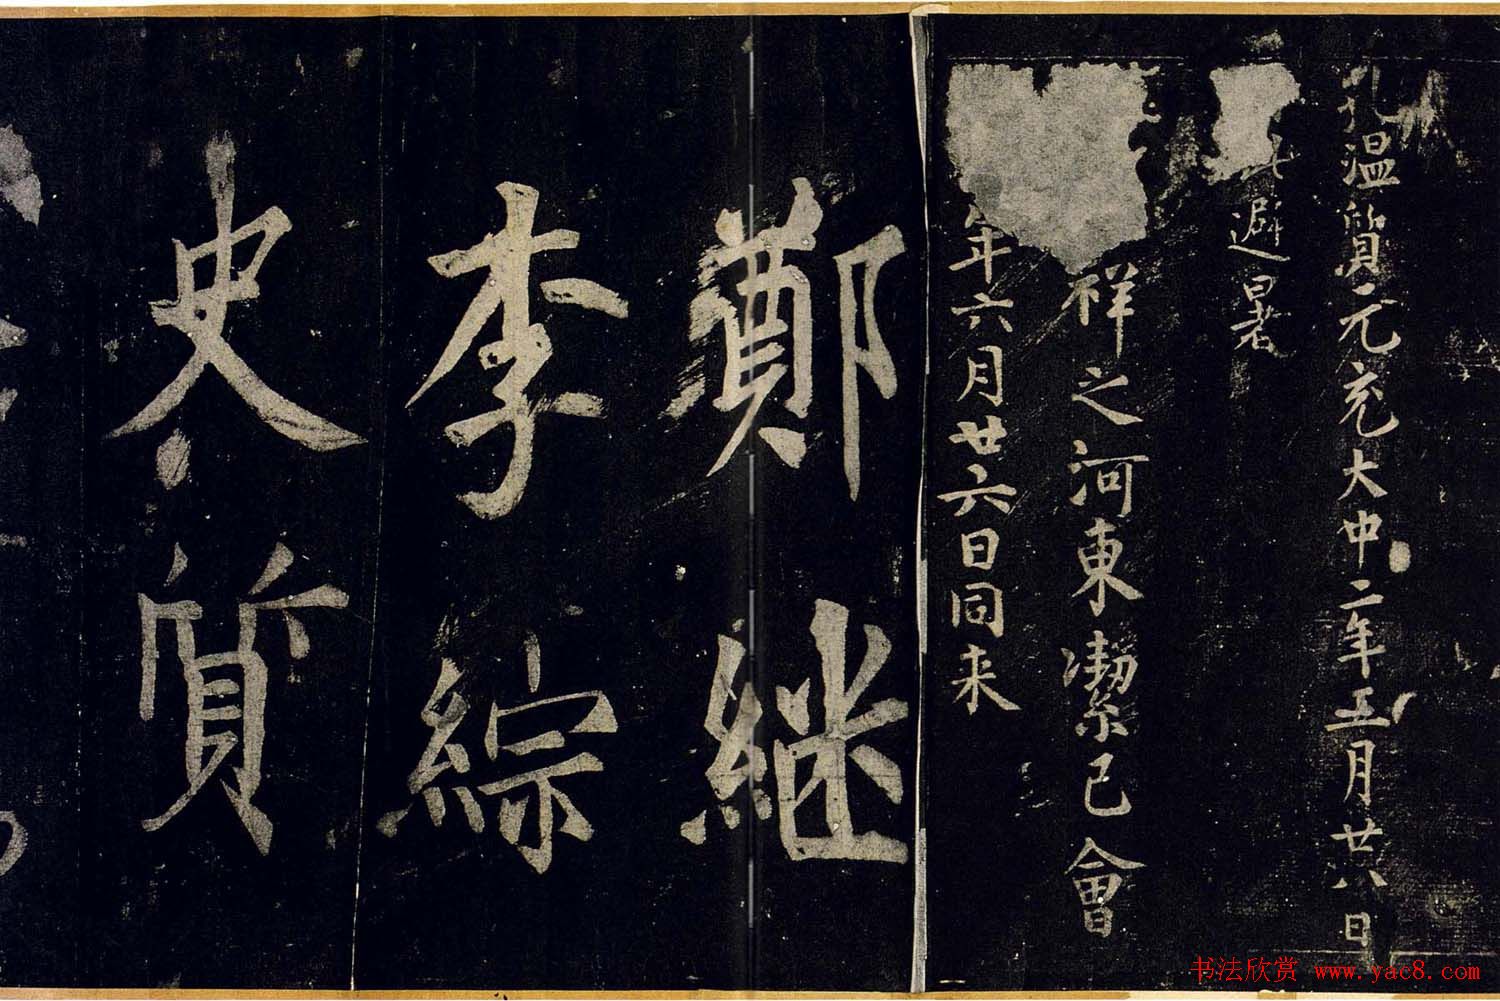 孔温質元充大中二年五月廿八日
避暑
祥之河東㓗己會
年六月廿六日同来
鄭継
李綜
史
質
书法欣赏 www.yac8.com